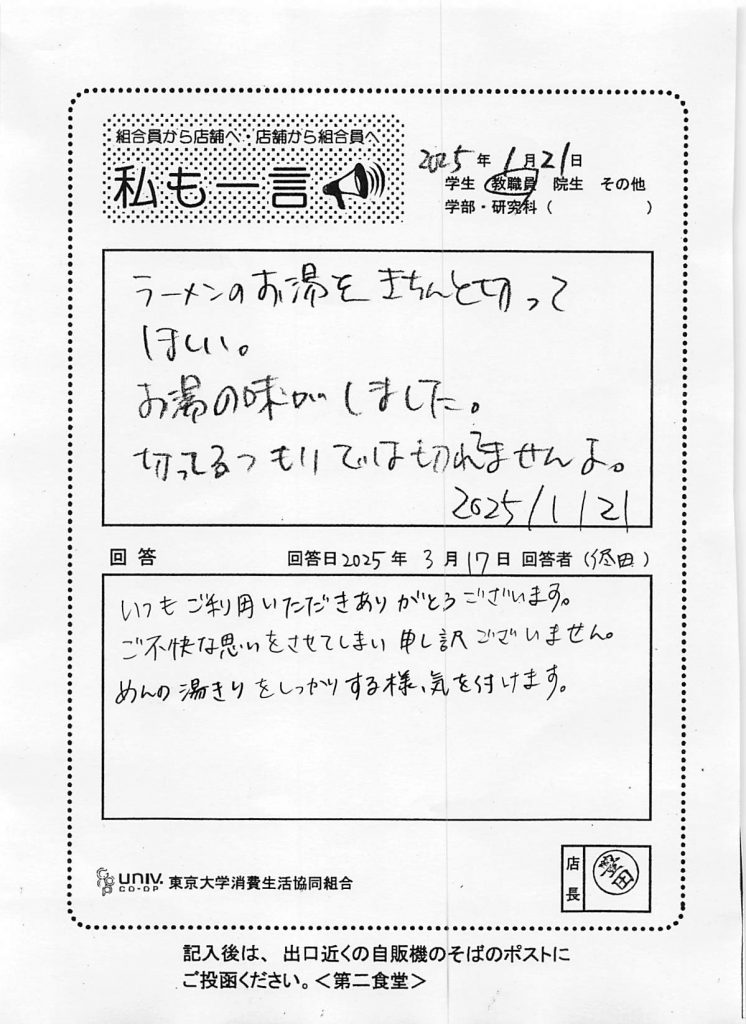 組合員から店舗へ・店舗から組合員へ
私も一言
2025年1月21日
学生 教職員 院生 その他
学部・研究科( )
ラーメンのお湯をきちんと切って
ほしい。
お湯の味がしました。
切ってるつもりでは切れてませんよ。
2025/1/21
回答 回答日2025年3月17日 回答者( 田)
いつもご利用いただきありがとうございます。
ご不快な思いをさせてしまい申し訳ございません。
めんの湯きりをしっかりする様、気を付けます。
UNIV. CO-OP 東京大学消費生活協同組合
店長
田
記入後は、出口近くの自販機のそばのポストに
ご投函ください。<第二食堂>